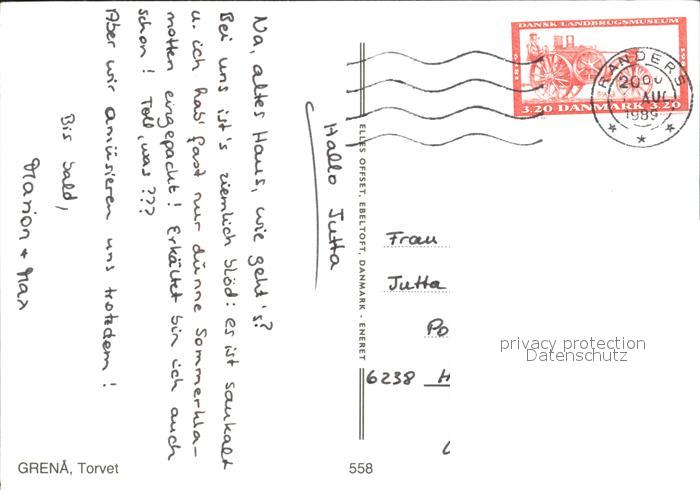 Hallo Jutta
Na, altes Haus, wie geht's?
Bei uns ist's ziemlich blöd: es ist saukalt
u. ich hab' fast nur dünne Sommerkla-
motten eingepackt! Erkältet bin ich auch
schon! Toll, was ???
Aber wir amüsieren uns trotzdem!
Bis bald,
Marion + Max
ELLES OFFSET, EBELTOFT, DANMARK - ENERET
DANSK LANDBRUGSMUSEUM
1889
1989
3.20 DANMARK 3.20
RANDERS
AUG
1989
Frau
Jutta
Po
6238 H
privacy protection
Datenschutz
GRENÅ, Torvet
558